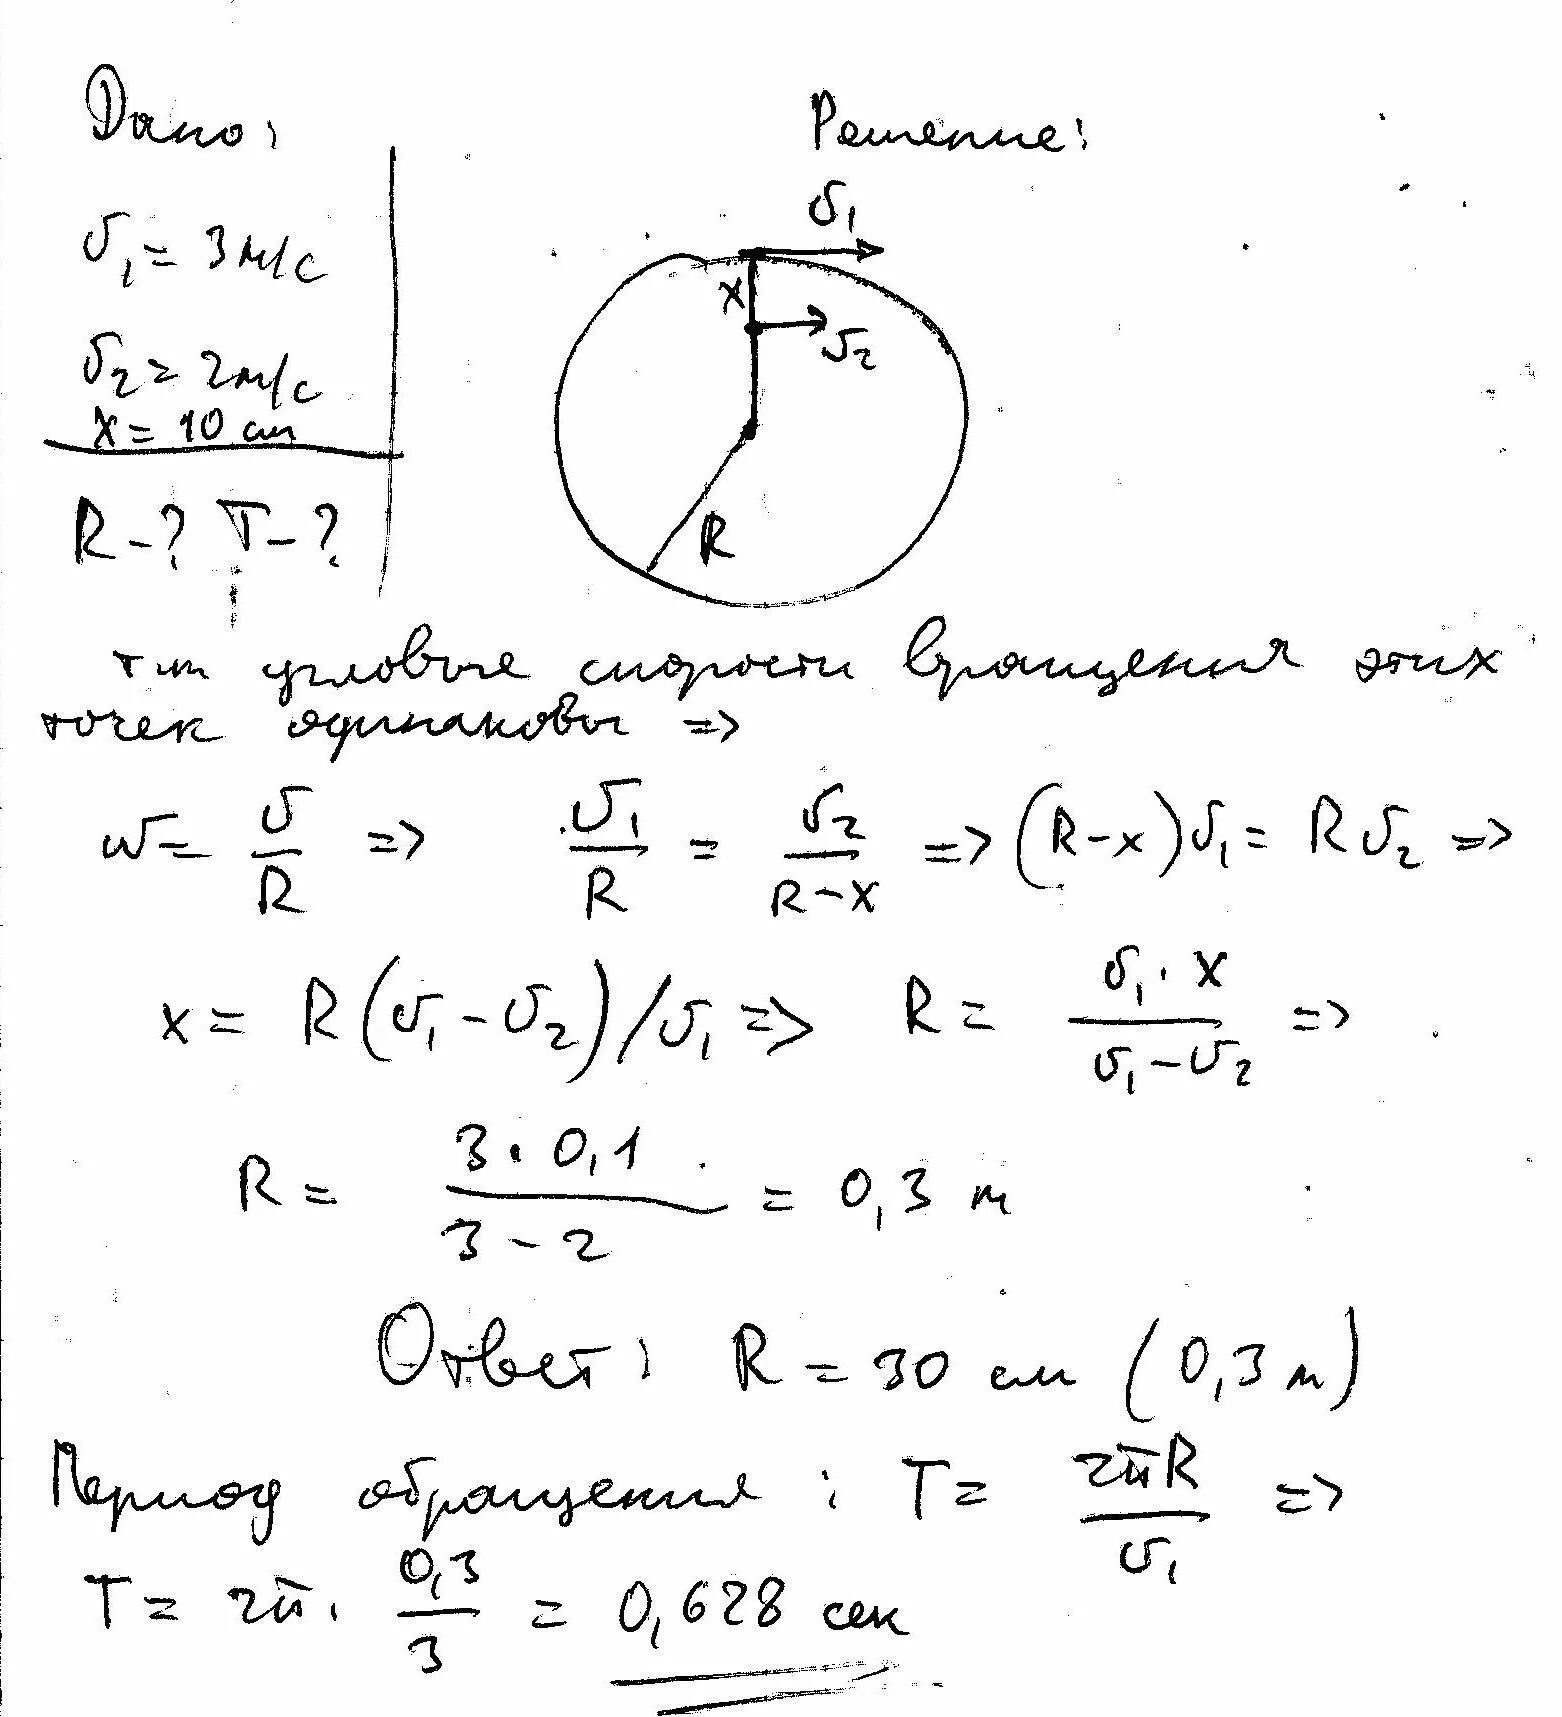 Дано:
Решение:
υ₁ = 3 м/с
υ₂ = 2 м/с
x = 10 см
R - ? T - ?
υ₁
x
υ₂
R
т.к. угловые скорости вращения этих
точек одинаковы =>
w = υ/R => υ₁/R = υ₂/(R-x) => (R-x)υ₁ = Rυ₂ =>
x = R(υ₁-υ₂)/υ₁ => R = υ₁·x/(υ₁-υ₂) =>
R = 3·0,1/(3-2) = 0,3 м
Ответ: R = 30 см (0,3 м)
Период обращения: T = 2πR/υ₁ =>
T = 2π·0,3/3 = 0,628 сек